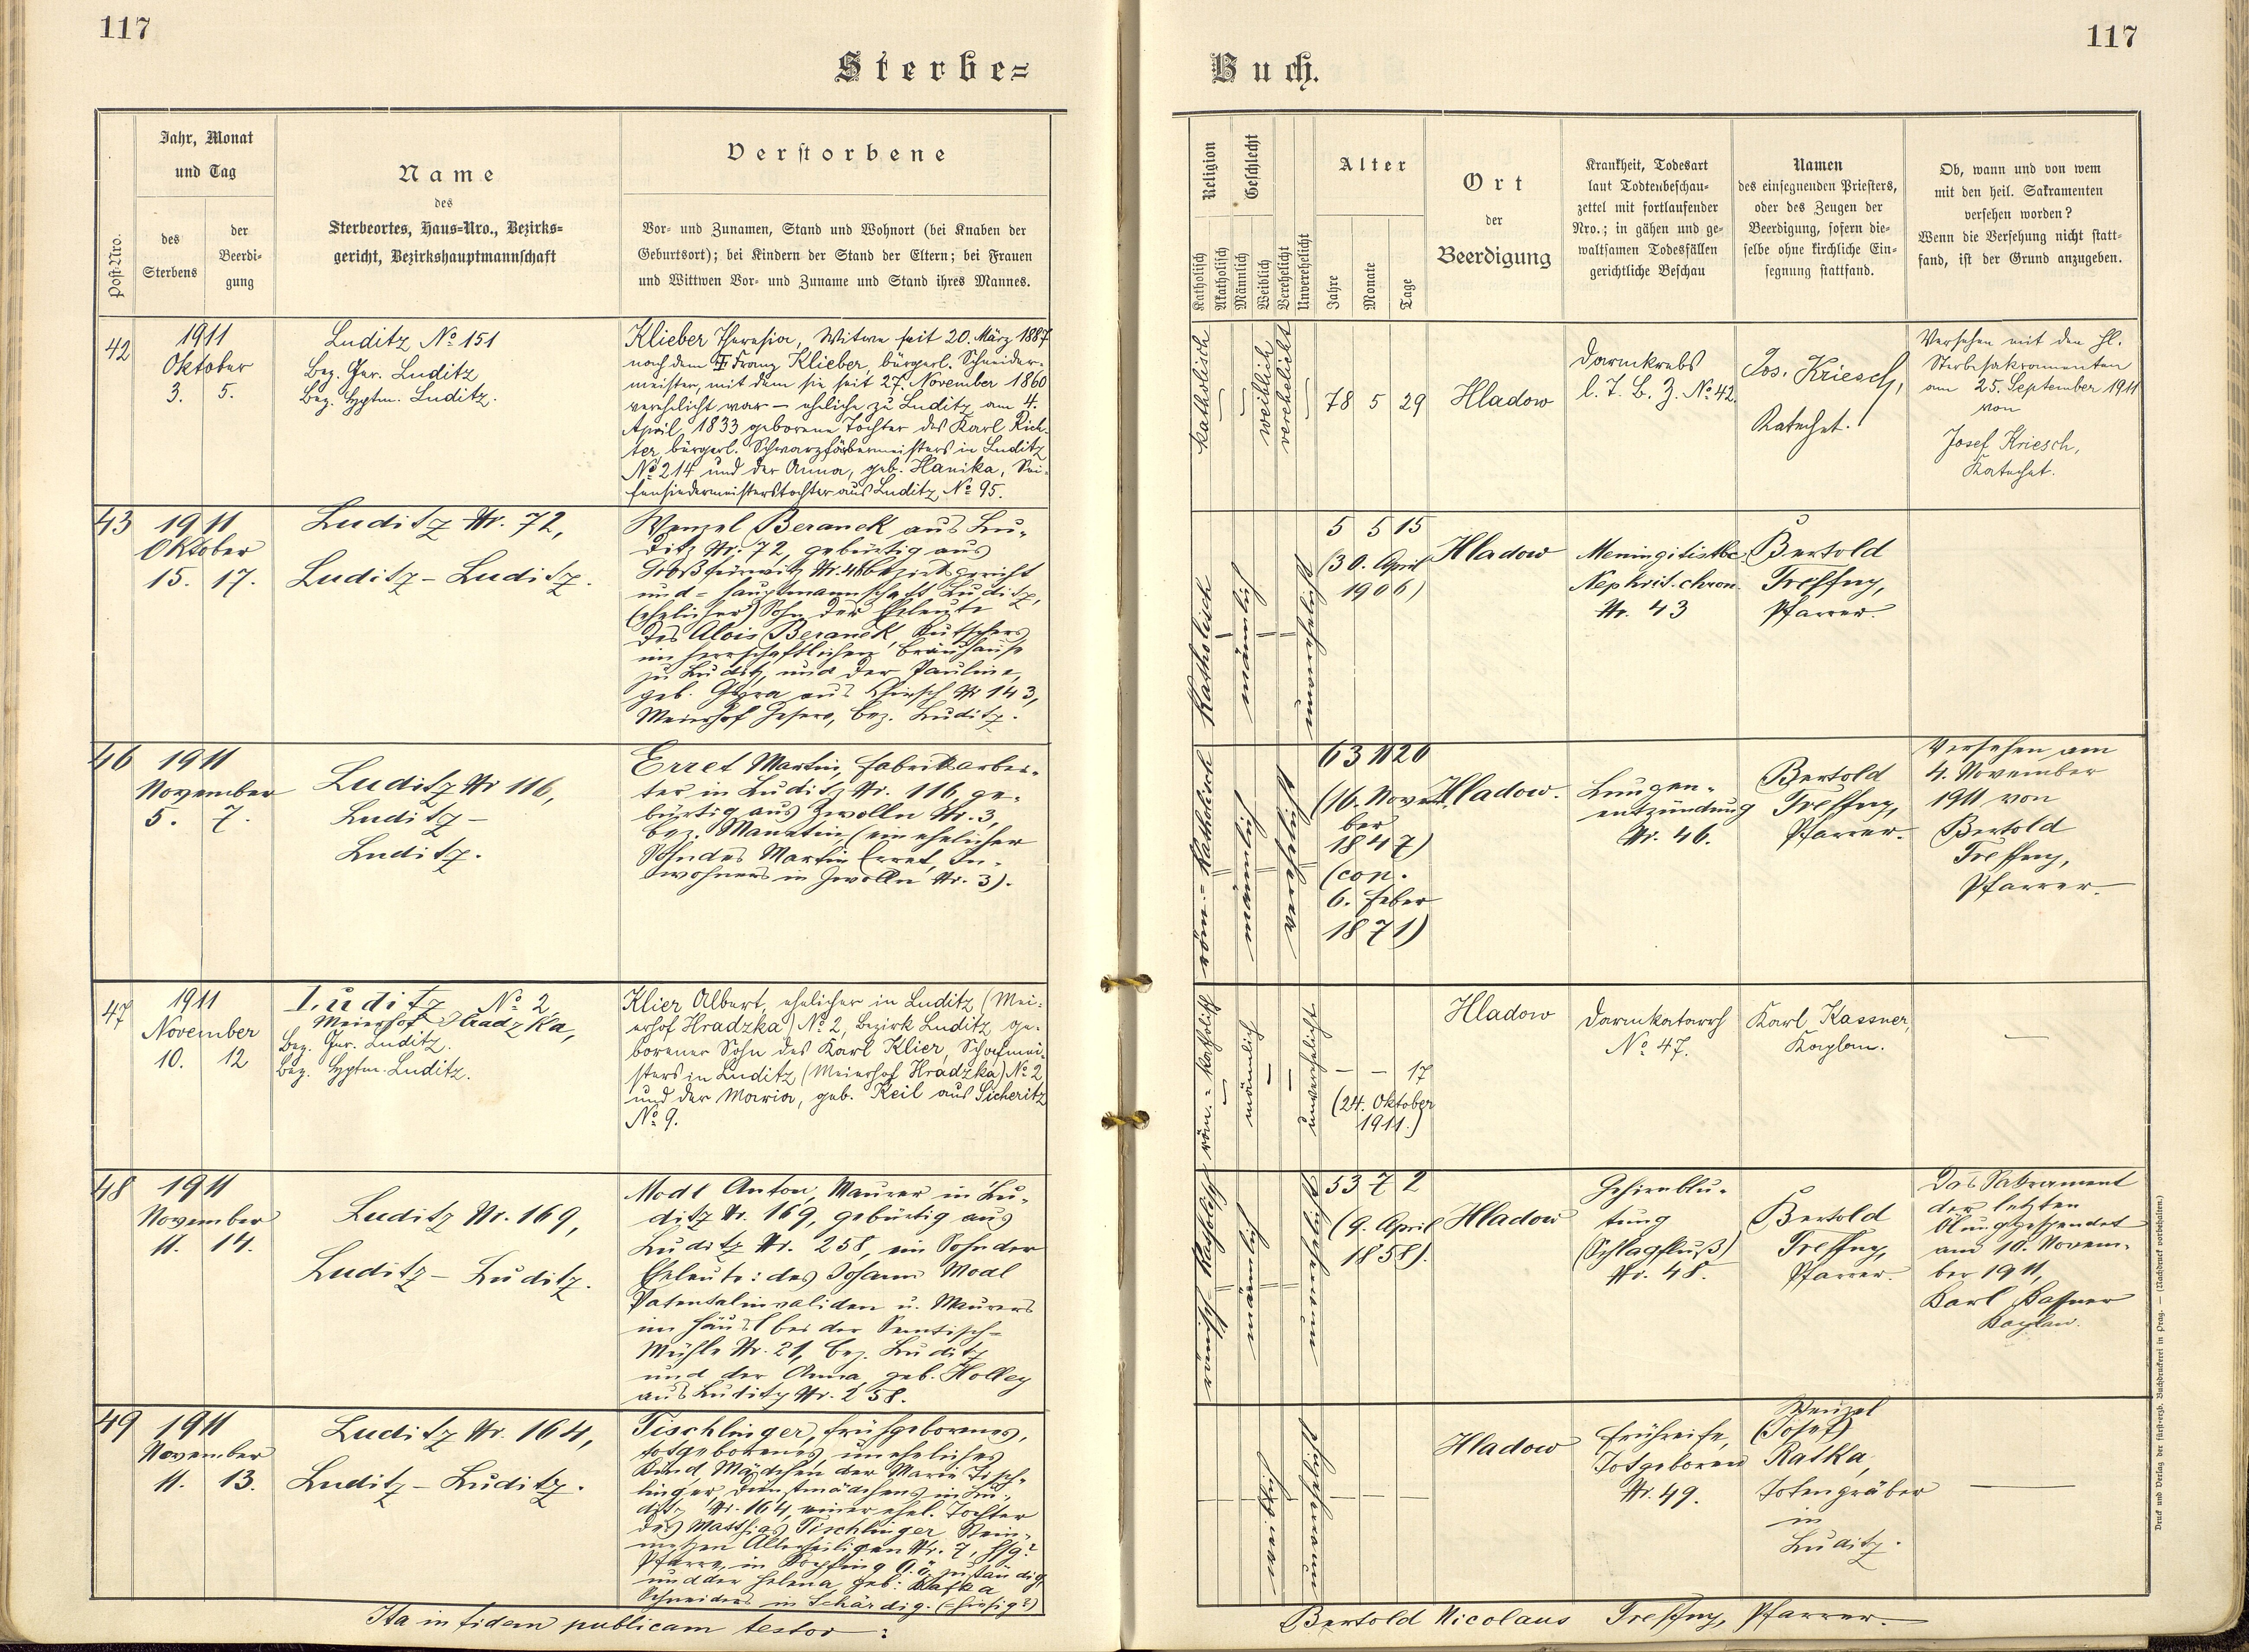 117
117
Sterbe=
Buch.
Post-Nro.
Jahr, Monat
und Tag
des
Sterbens
der
Beerdi-
gung
Name
des
Sterbeortes, Haus=Nro., Bezirks=
gericht, Bezirkshauptmannschaft
Verstorbene
Vor- und Zunamen, Stand und Wohnort (bei Knaben der
Geburtsort); bei Kindern der Stand der Eltern; bei Frauen
und Wittwen Vor- und Zuname und Stand ihres Mannes.
Religion
Katholisch
Akatholisch
Geschlecht
Männlich
Weiblich
Verehelicht
Unverehelicht
Alter
Jahre
Monate
Tage
Ort
der
Beerdigung
Krankheit, Todesart
laut Todtenbeschau-
zettel mit fortlaufender
Nro.; in gähen und ge-
waltsamen Todesfällen
gerichtliche Beschau
Namen
des einsegnenden Priesters,
oder des Zeugen der
Beerdigung, sofern die-
selbe ohne kirchliche Ein-
segnung stattfand.
Ob, wann und von wem
mit den heil. Sakramenten
versehen worden?
Wenn die Versehung nicht statt-
fand, ist der Grund anzugeben.
42
1911
Oktober
3. 5.
Luditz No 151
Bez. Ger. Luditz
Bez. Hptm. Luditz.
Klieber Theresia, Witwe seit 20. März 1887
nach dem Franz Klieber, bürgerl. Schneider-
meister, mit dem sie seit 27. November 1860
verehelicht war – eheliche zu Luditz am 4.
April 1833 geborene Tochter des Karl Rich-
ter, bürgerl. Schwarzfärbermeisters in Luditz
No 214 und der Anna, geb. Hanika, Sei-
fensiedermeisterstochter aus Luditz No 95.
katholisch
weiblich
verehelicht
78 5 29
Hladow
Darmkrebs
l. T. B. Z. No 42.
Jos. Kriesch,
Katechet.
Versehen mit den hl.
Sterbesakramenten
am 25. September 1911
von
Josef Kriesch,
Katechet.
43
1911
Oktober
15. 17.
Luditz Nr. 72,
Luditz – Luditz.
Wenzel Beranek aus Lu-
ditz Nr. 72, gebürtig aus
Nr. 46 Bezirksgericht
und = hauptmannschaft Luditz,
(ehelicher) Sohn der Eheleute
des Alois Beranek, Kutschers
im herrschaftlichen Bräuhause
zu Luditz, und der Pauline,
geb. aus Chiesch Nr 143,
Meierhof bez. Luditz.
Katholisch
männlich
unverehelicht
5 5 15
(30. April
1906)
Hladow
Meningitis tbc
Nephrit. chron.
Nr. 43
Bertold
Treffny,
Pfarrer.
46
1911
November
5. 7.
Luditz Nr 116,
Luditz –
Luditz.
Erret Martin, Fabrikarbei-
ter in Luditz Nr. 116, ge-
bürtig aus Zwolln Nr. 3,
bez. Manetin (ein ehelicher
Sohn des Martin Erret, In-
wohners in Zwolln Nr. 3).
röm.=Katholisch
männlich
verehelicht
63 11 20
(16. Novem-
ber
1847)
(cop.
6. Feber
1871)
Hladow.
Lungen-
entzündung
Nr. 46.
Bertold
Treffny,
Pfarrer.
Versehen am
4. November
1911 von
Bertold
Treffny,
Pfarrer.
47
1911
November
10. 12
Luditz No 2,
Meierhof Hradzka,
Bez. Ger. Luditz.
Bez. Hptm. Luditz.
Klier Albert, ehelicher in Luditz (Mei-
erhof Hradzka) No 2, Bezirk Luditz, ge-
borener Sohn des Karl Klier, Schafmei-
sters in Luditz (Meierhof Hradzka) No 2
und der Maria, geb. Keil aus Sicheritz
No 9.
röm.=katholisch
männlich
unverehelicht
– – 17
(24. Oktober
1911.)
Hladow
Darmkatarrh
No 47.
Karl Kassner,
Kaplan.
—
48
1911
November
11. 14.
Luditz Nr. 169,
Luditz – Luditz.
Modl Anton, Maurer in Lu-
ditz Nr. 169, gebürtig aus
Luditz Nr. 258, ein Sohn der
Eheleute: des Johann Modl
Patentalinvaliden u. Maurers
im Häusl bei der
Mühle Nr. 21, bez. Luditz
und der Anna, geb. Holley
aus Luditz Nr. 258.
römisch-Katholisch
männlich
unverehelicht
53 7 2
(9. April
1858).
Hladow
Gehirnblu-
tung
(Schlagfluß)
Nr. 48.
Bertold
Treffny,
Pfarrer.
Das Sakrament
der letzten
Ölung gespendet
am 10. Novem-
ber 1911,
Karl Kassner
Kaplan.
49
1911
November
11. 13.
Luditz Nr. 164,
Luditz – Luditz.
Tischlinger, frühgeborenes,
totgeborenes, uneheliches
Kind, Mädchen der Marie Tisch-
linger, Dienstmädchens in Lu-
ditz Nr. 164, einer ehel. Tochter
des Matthias Tischlinger, Stein-
metzen Allerheiligen Nr. 7,
Pfarre, in zuständig
und der Helena, geb. Kafka
Schneiders in Schärdig.
weiblich
unverehelicht
Hladow
Frühreife,
Totgeboren
Nr. 49.
Wenzel
(Josef)
Ratka,
Totengräber
in
Luditz.
—
Ita in fidem publicam testor:
Bertold Nicolaus Treffny, Pfarrer.
Druck und Verlag der fürsterzb. Buchdruckerei in Prag. — (Nachdruck vorbehalten.)